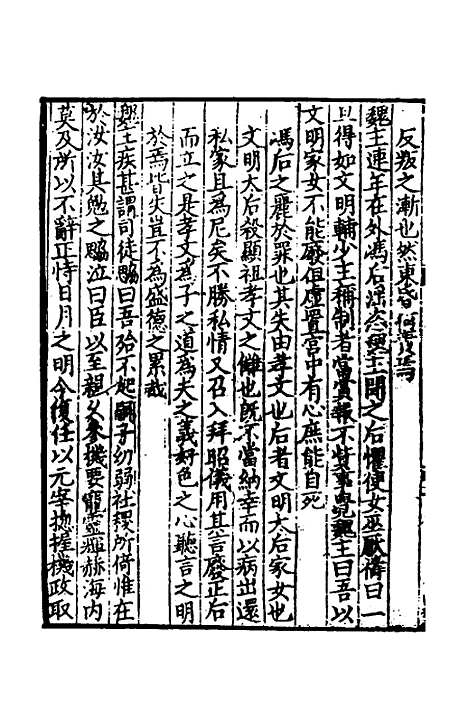 反叛之漸也然東昏何責焉
魏主連年在外馮后淫恣魏主聞之后懼使女巫厭禱曰一
旦得如文明輔少主稱制者當賞報不貲事覺魏主曰吾以
文明家女不能廢但虚置宮中有心庶能自死
馮后之罹於罪也其失由孝文也后者文明大后家女也
文明大后殺顯祖孝文之讎也旣不當納幸而以病出還
私家且爲尼矣不勝私情又召入拜昭儀用其言廢正后
而立之是孝文爲子之道爲夫之義好色之心聽言之明
於焉皆失豈不爲盛德之累哉
魏主疾甚謂司徒勰曰吾殆不起嗣子幼弱社稷所倚惟在
於汝汝其勉之勰泣曰臣以至親久參機要寵靈輝赫海内
莫及所以不辭正恃日月之明今復任以元宰揔握機政取